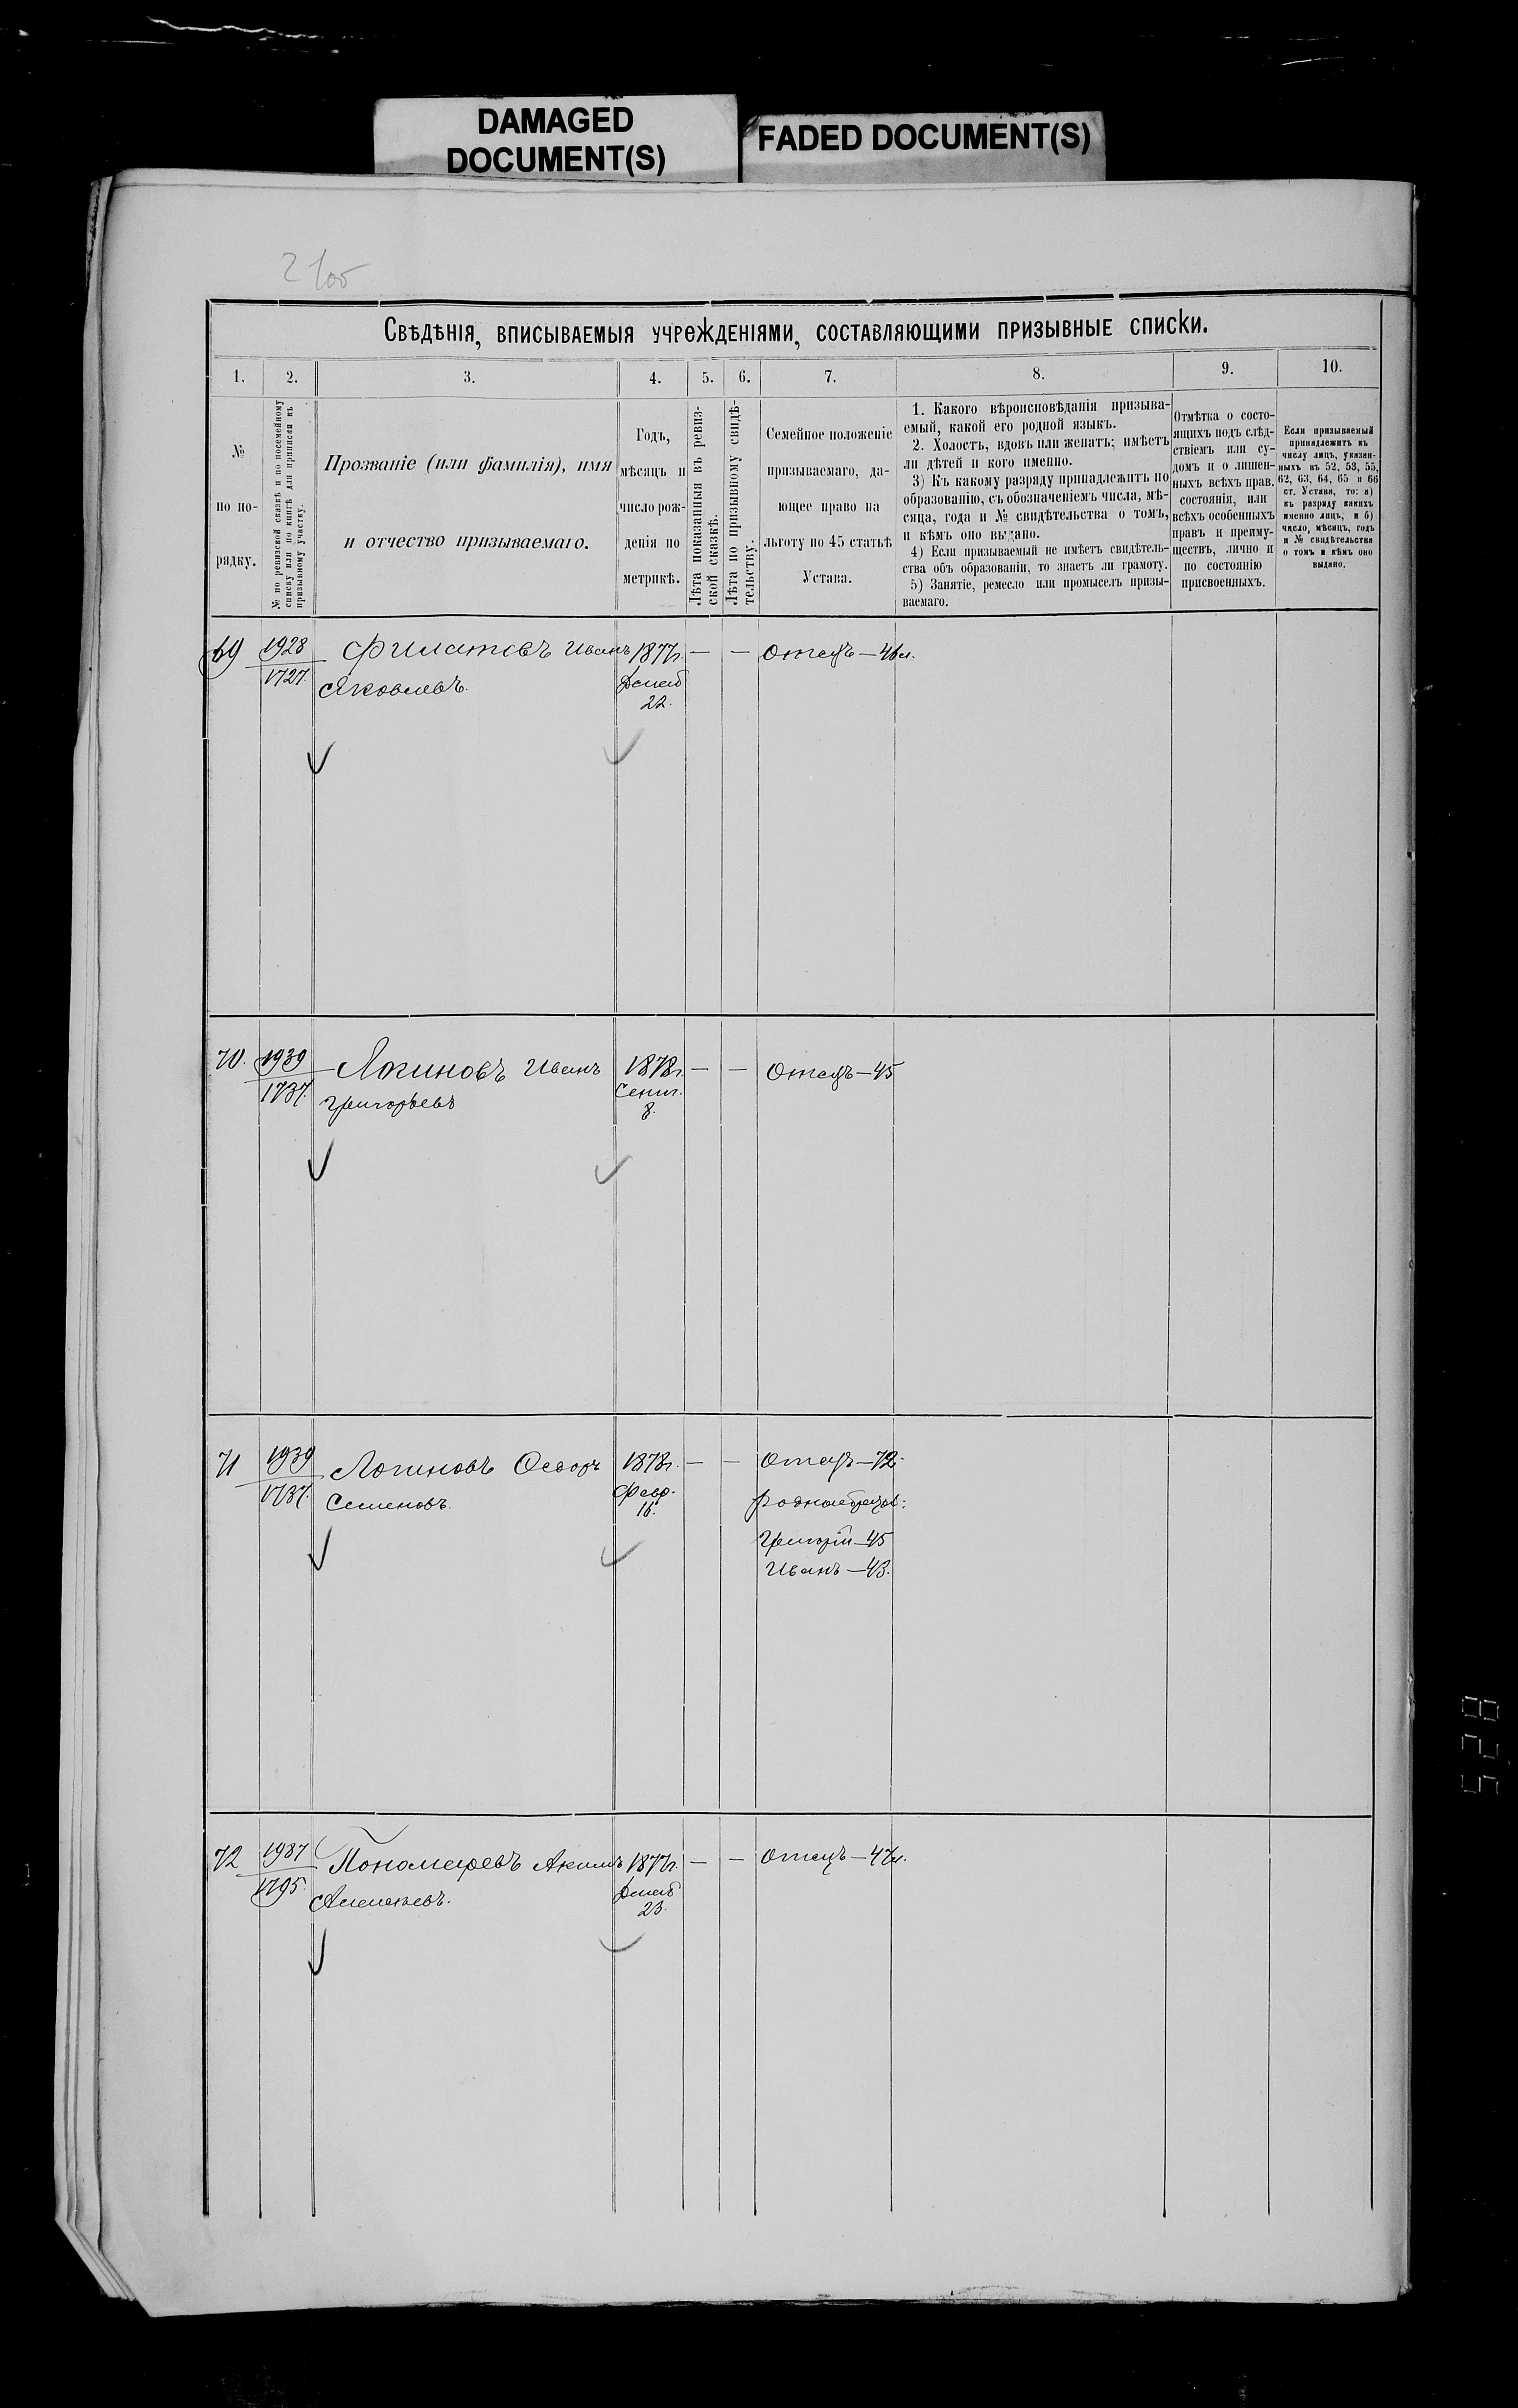 DAMAGED
DOCUMENT(S)
FADED DOCUMENT(S)
Свѣдѣнія, вписываемыя учрежденіями, составляющими призывные списки.
1. 2. 3. 4. 5. 6. 7. 8. 9. 10.
№
по по-
рядку.
№ по ревизской сказкѣ и по посемейному
списку или по книгѣ для приписки къ
призывному участку.
Прозваніе (или фамилія), имя
и отчество призываемаго.
Годъ,
мѣсяцъ и
число рож-
денія по
метрикѣ.
Лѣта показанныя въ ревиз-
ской сказкѣ.
Лѣта по призывному свидѣ-
тельству.
Семейное положеніе
призываемаго, да-
ющее право на
льготу по 45 статьѣ
Устава.
1. Какого вѣроисповѣданія призыва-
емый, какой его родной языкъ.
2. Холостъ, вдовъ или женатъ; имѣетъ
ли дѣтей и кого именно.
3) Къ какому разряду принадлежитъ по
образованію, съ обозначеніемъ числа, мѣ-
сяца, года и № свидѣтельства о томъ,
и кѣмъ оно выдано.
4) Если призываемый не имѣетъ свидѣтель-
ства объ образованіи, то знаетъ ли грамоту.
5) Занятіе, ремесло или промыселъ призы-
ваемаго.
Отмѣтка о состо-
ящихъ подъ слѣд-
ствіемъ или су-
домъ и о лишен-
ныхъ всѣхъ прав.
состоянія, или
всѣхъ особенныхъ
правъ и преиму-
ществъ, лично и
по состоянію
присвоенныхъ.
Если призываемый
принадлежитъ къ
числу лицъ, указан-
ныхъ въ 52, 53, 55,
62, 63, 64, 65 и 66
ст. Устава, то: а)
къ разряду какихъ
именно лицъ, и б)
число, мѣсяцъ, годъ
и № свидѣтельства
о томъ и кѣмъ оно
выдано.
69 1928 Филатовъ Иванъ 1877г. — — Отецъ—46л.
1727. Яковлевъ. Декаб
22.
70. 1939 Логиновъ Иванъ 1878г. — — Отецъ—45
1737. Григорьевъ Сент.
8.
71 1939 Логиновъ Ѳедоръ 1878г. — — Отецъ—72
1737. Семеновъ. Февр.
16.
Григорій—45
Иванъ—43.
72 1987 Пономаревъ Акимъ 1877г. — — Отецъ—47л.
1795. Алексѣевъ. Декаб
23.
528